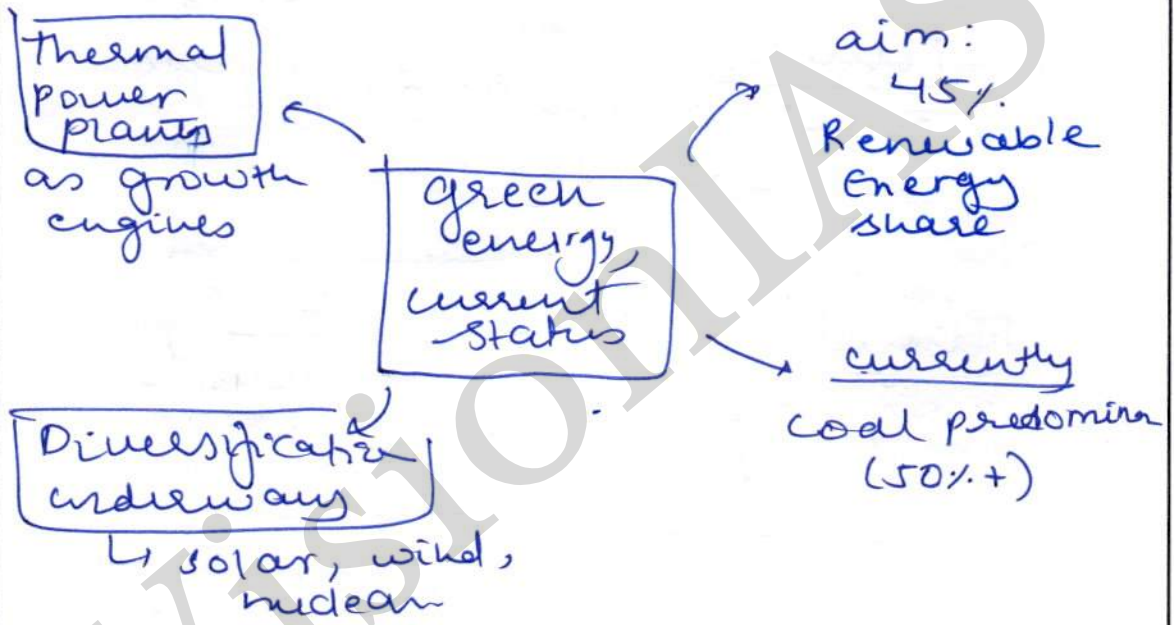 Thermal
power
plants
as growth
engines
green
energy,
current
status
aim:
45%
Renewable
Energy
share
currently
coal predomina
(50%+)
Diversification
underway
↳ solar, wind,
nuclear
VisionIAS